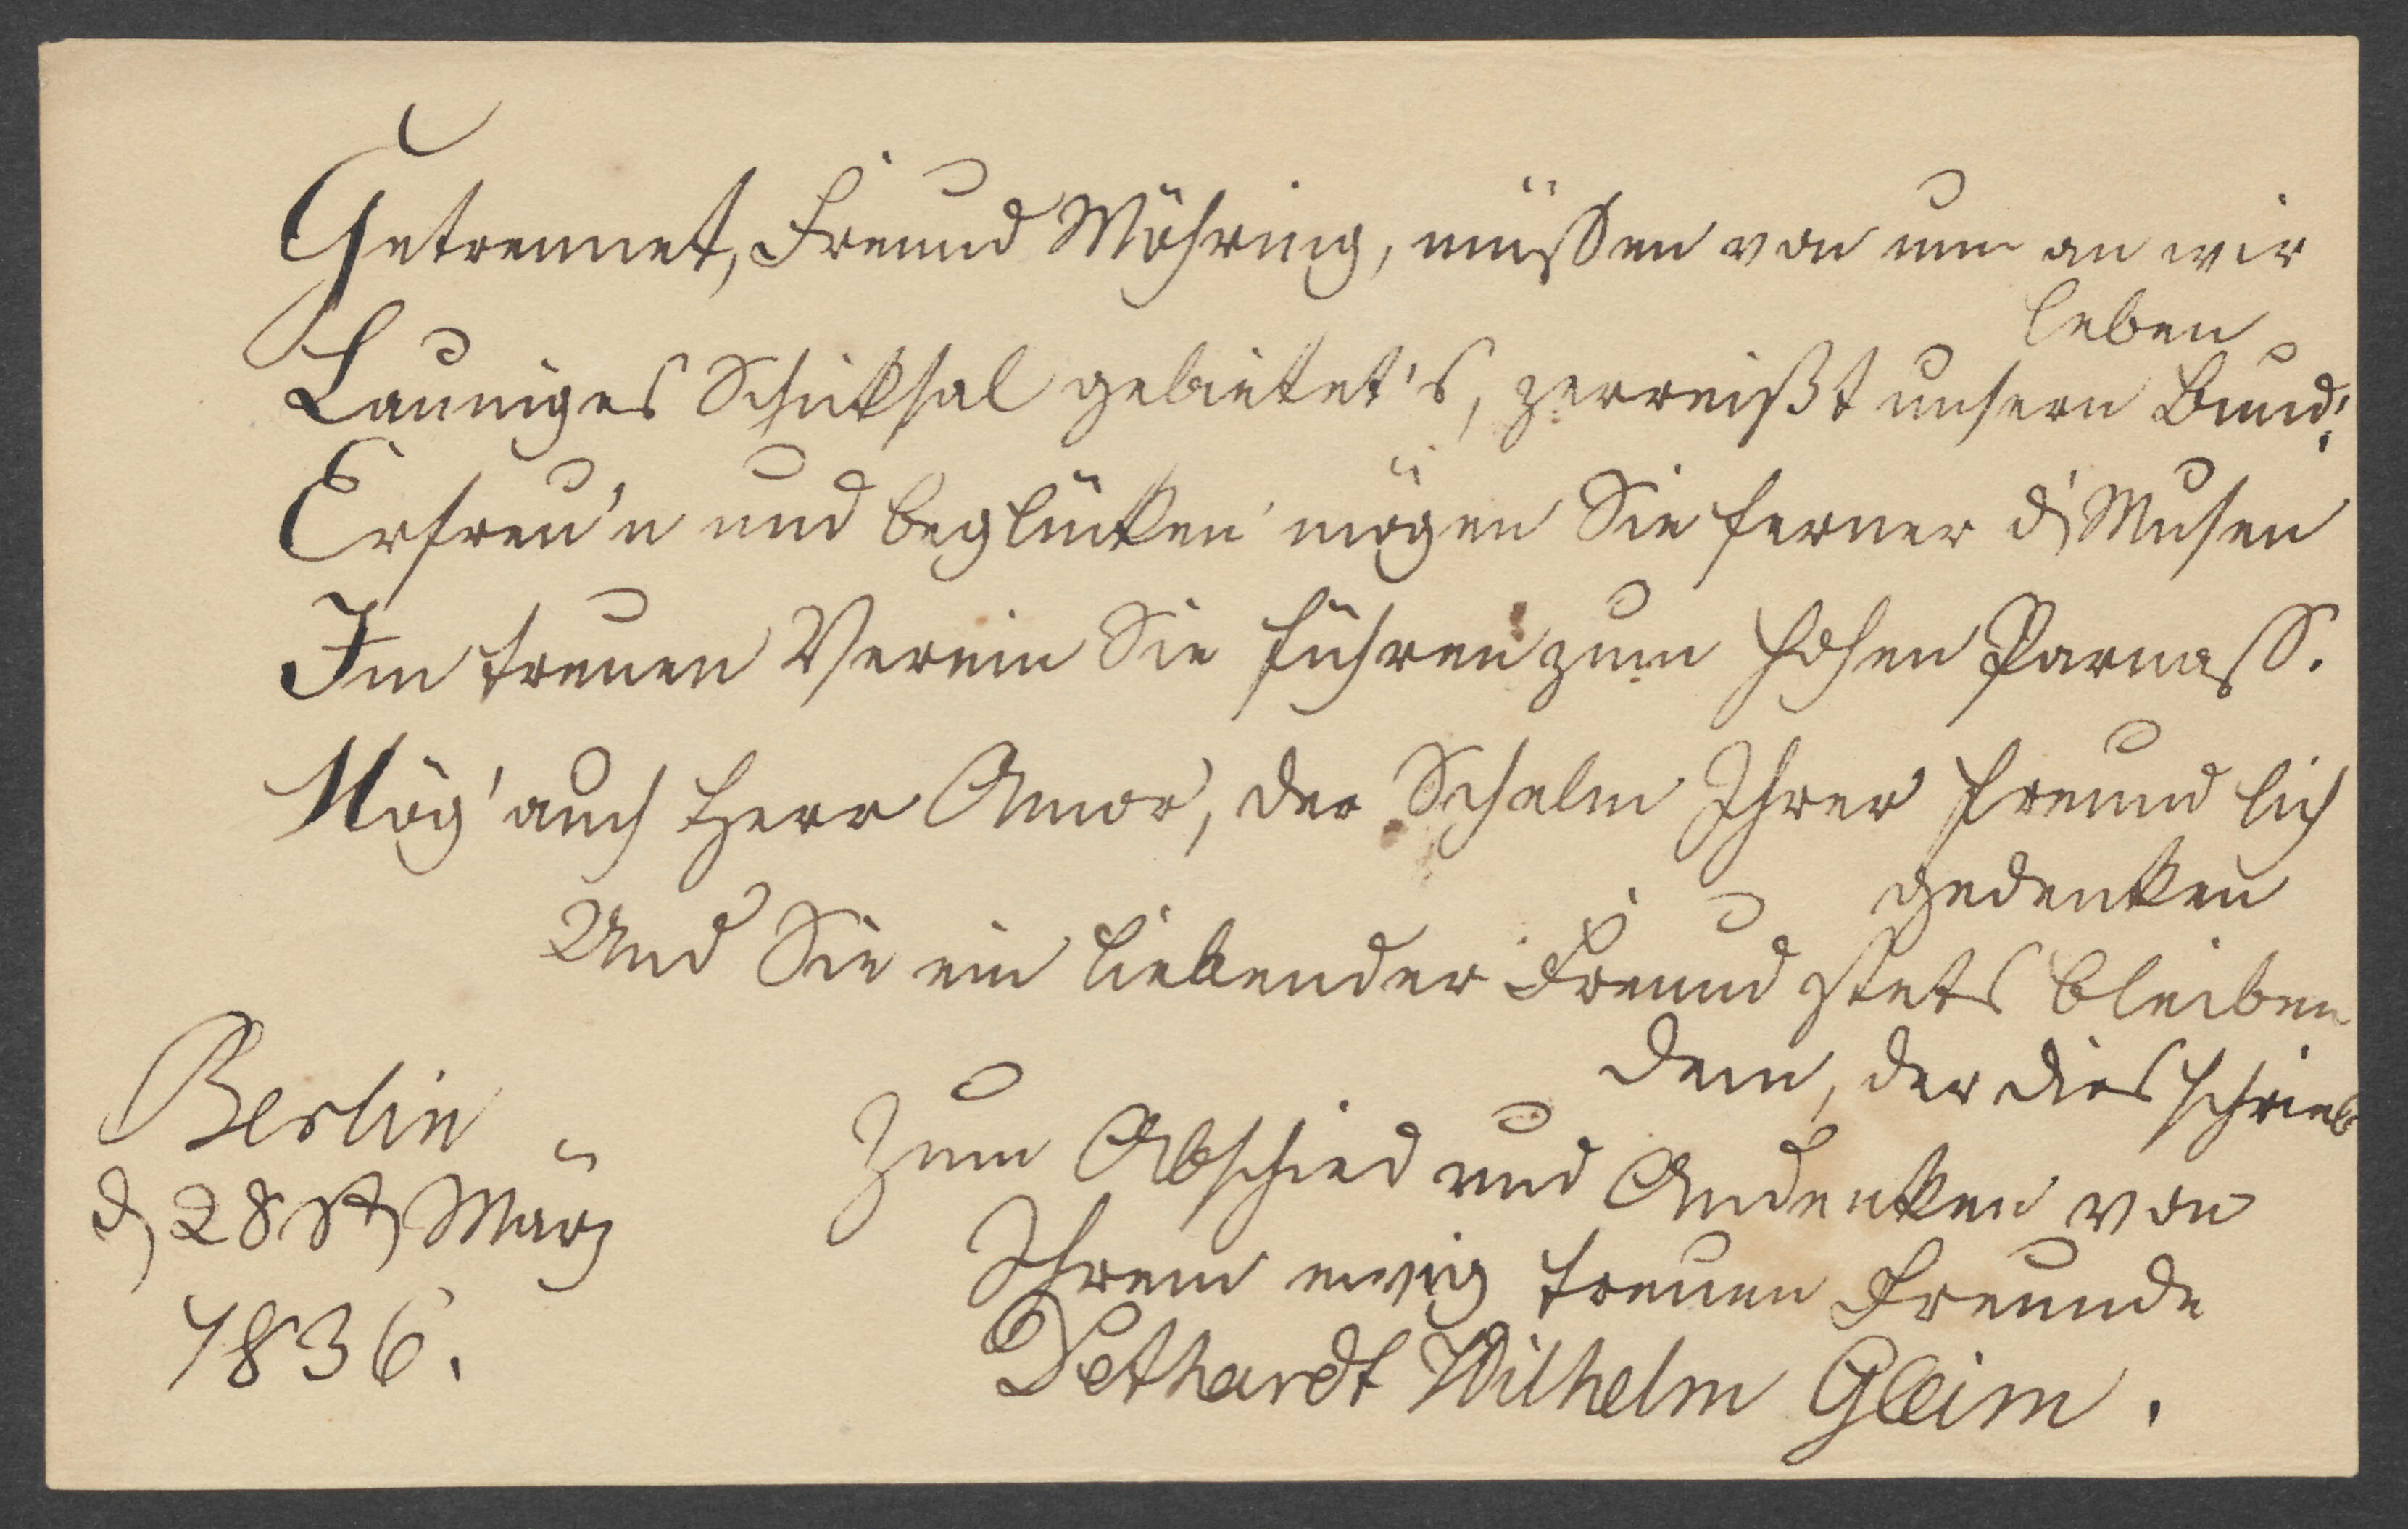 Getrennet, Freund Möhring, müssen von nun an wir
leben
Launiges Schicksal gebietet's, zerreißt unsern Bund;
Erfreu'n und beglücken mögen Sie ferner d. Musen
Im treuen Verein Sie führen zum hohen Parnass.
Mög' auch Herr Amor, der Schalm Ihrer freundlich
gedenken
Und Sie ein liebender Freund stets bleiben
dem, der dies schrieb
Zum Abschied und Andenken von
Ihrem ewig treuen Freunde
Dethardt Wilhelm Gleim.
Berlin
d. 28st. März
1836.